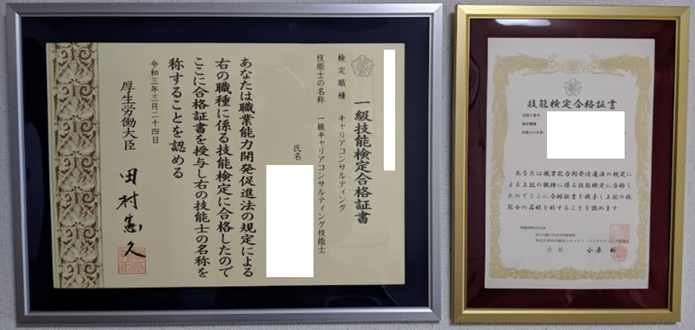 一級技能検定合格証書
検定職種 キャリアコンサルティング
技能士の名称 一級キャリアコンサルティング技能士
氏名
あなたは職業能力開発促進法の規定による
右の職種に係る技能検定に合格したので
ここに合格証書を授与し右の技能士の名称を
称することを認める
令和三年三月二十四日
厚生労働大臣 田村憲久
技能検定合格証書
あなたは職業能力開発促進法の規定に
よる上記の職種に係る技能検定に合格し
たのでここに合格証書を授与し上記の技
能士の名称を称することを認めます
会長